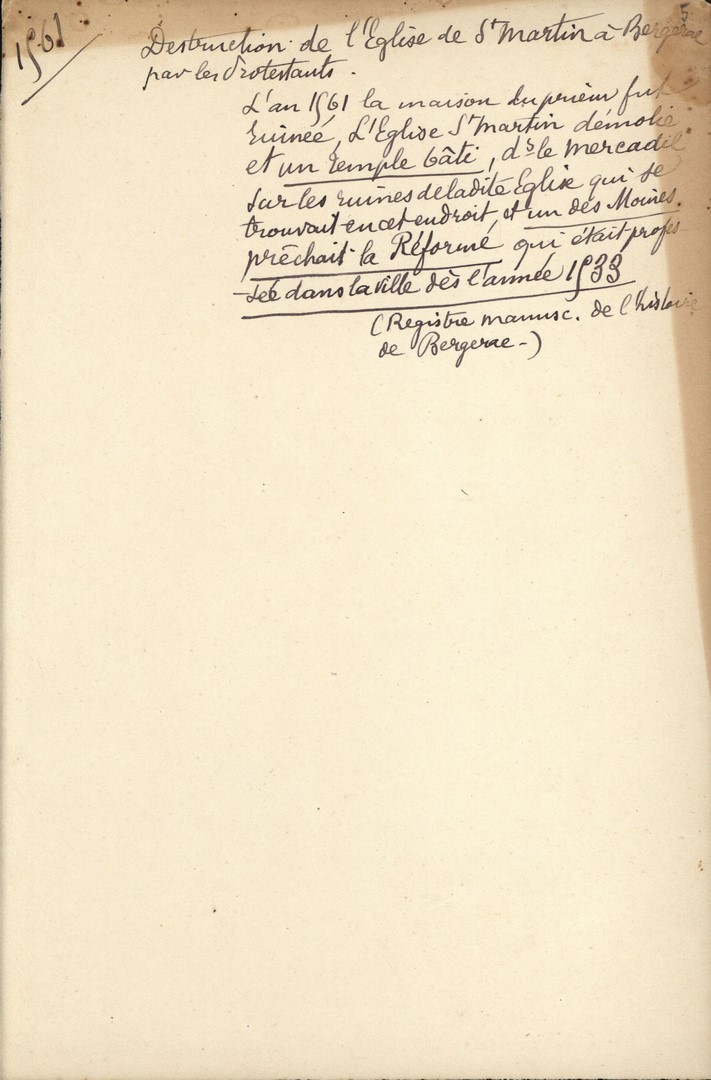 5
1561
Destruction de l'Eglise de St Martin à Bergerac
par les Protestants.
L'an 1561 la maison du prieur fut
ruinée, L'Eglise St Martin démolie
et un temple bâti, ds le Mercadil
sur les ruines de ladite Eglise qui se
trouvait en cet endroit, et un des Moines
prêchait la Réforme qui était profes
-sée dans la ville dès l'année 1533
(Registre manusc. de l'histoire
de Bergerac -)